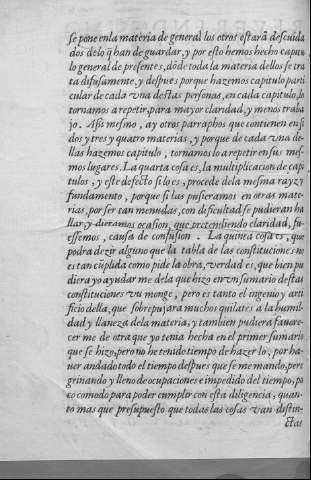 se pone en la materia de general los otros estarã descuida
dos de lo q̃ han de guardar, y por esto hemos hecho capitu
lo general de presentes, dõde toda la materia dellos se tra
ta difusamente, y despues porque hazemos capitulo parti
cular de cada vna destas personas, en cada capitulo, lo
tornamos a repetir, para mayor claridad, y menos traba
jo. Assi mesmo, ay otros parraphos que contienen en si
dos y tres y quatro materias, y porque de cada vna de-
llas hazemos capitulo, tornamos lo a repetir en sus mes-
mos lugares. La quarta cosa es, la multiplicacion de capi
tulos, y este defecto si lo es, procede dela mesma rayz y
fundamento, porque si las pusieramos en otras mate-
rias, por ser tan menudas, con dificultad se pudieran ha
llar, y dieramos ocasion, que pretendiendo claridad, fu-
essemos, causa de confusion. La quinta cosa es, que
podra dezir alguno que la tabla de las constituciones no
es tan cũplida como pide la obra, verdad es, que bien pu
diera yo ayudar me dela que hizo en vn sumario destas
constituciones vn monge, pero es tanto el ingenio y arti
ficio della, que sobrepujara muchos quilates a la humil-
dad y llaneza dela materia, y tambien pudiera fauore-
cer me de otra que yo tenia hecha en el primer sumario
que se hizo, pero no he tenido tiempo de hazer lo, por ha-
uer andado todo el tiempo despues que se me mando, pere
grinando y lleno de ocupaciones e impedido del tiempo, po
co comodo para poder cumplir con esta diligencia, quan-
to mas que presupuesto que todas las cosas van distin-
ctas